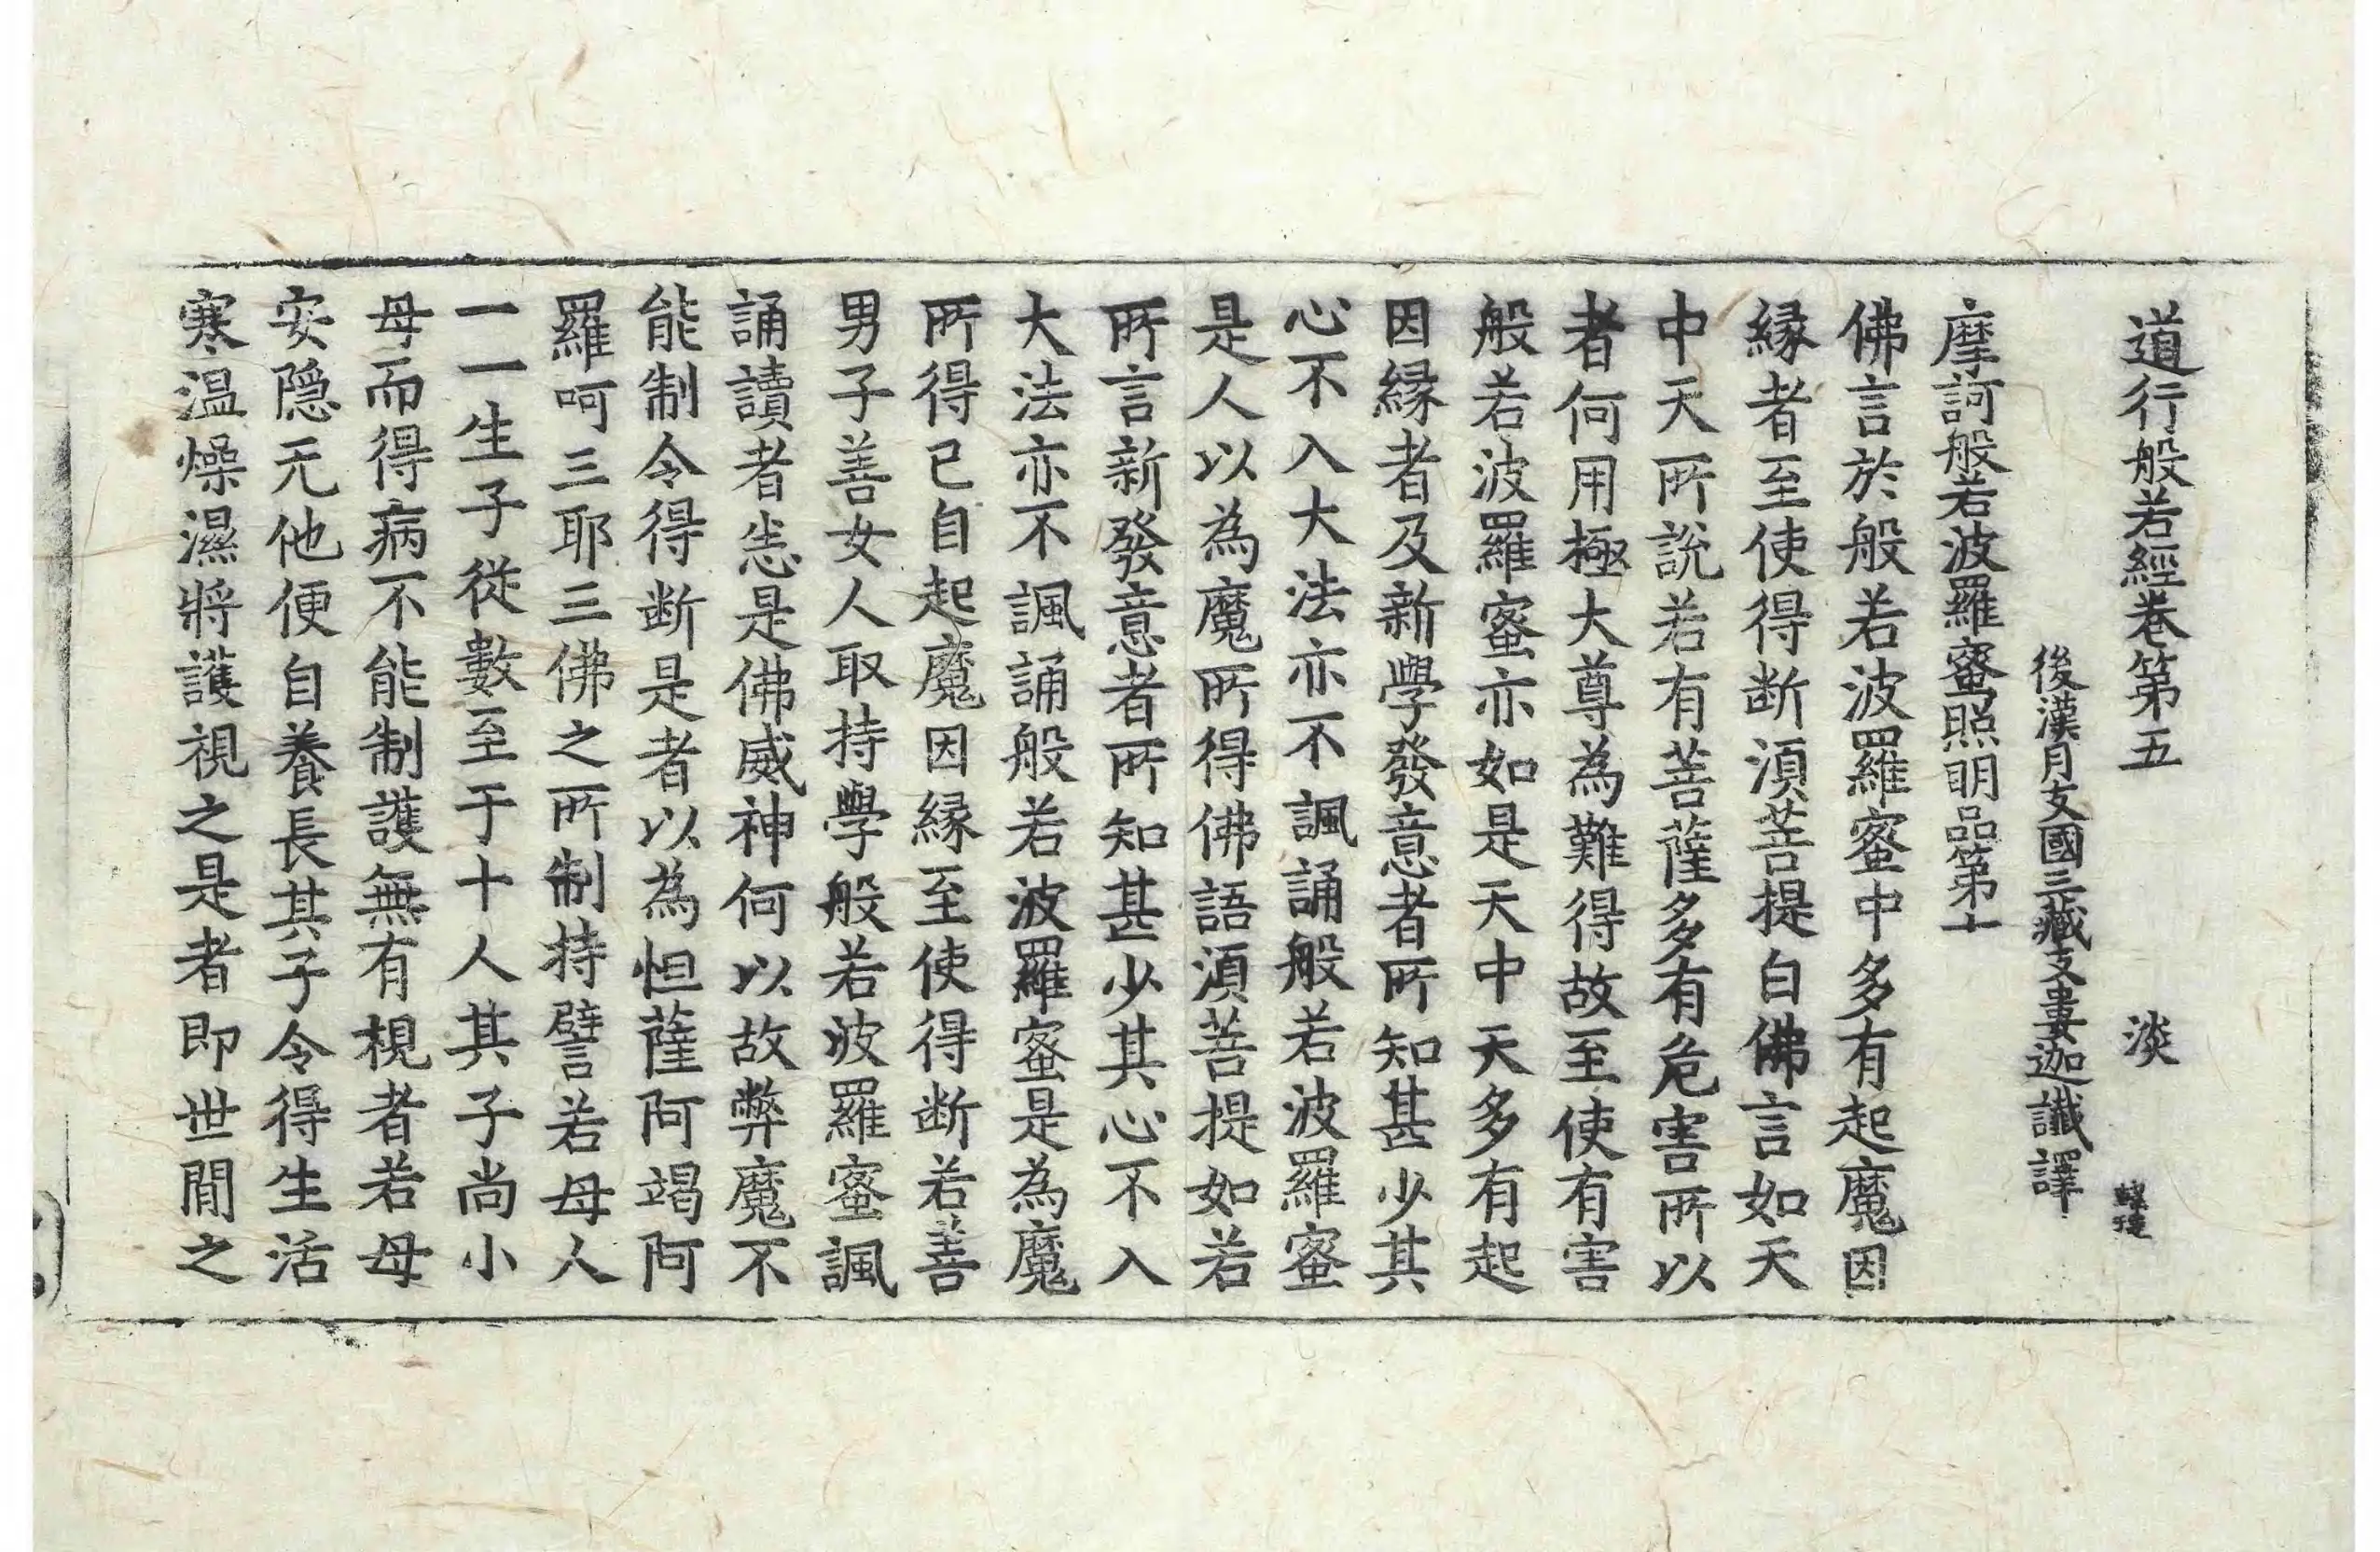 道行般若經卷第五 淡
後漢月支國三藏支婁迦讖譯
摩訶般若波羅蜜照明品第十
佛言於般若波羅蜜中多有起魔因
縁者至使得断湏菩提白佛言如天
中天所說若有菩薩多有危害所以
者何用極大尊為難得故至使有害
般若波羅蜜亦如是天中天多有起
因縁者及新學發意者所知甚少其
心不入大法亦不諷誦般若波羅蜜
是人以為魔所得佛語湏菩提如若
所言新發意者所知甚少其心不入
大法亦不諷誦般若波羅蜜是為魔
所得已自起魔因縁至使得断若善
男子善女人取持學般若波羅蜜諷
誦讀者悉是佛威神何以故弊魔不
能制令得断是者以為怛薩阿竭阿
羅呵三耶三佛之所制持譬若母人
一一生子從數至于十人其子尚小
母而得病不能制護無有視者若母
安隱无他便自養長其子令得生活
寒温燥濕將護視之是者即世閒之